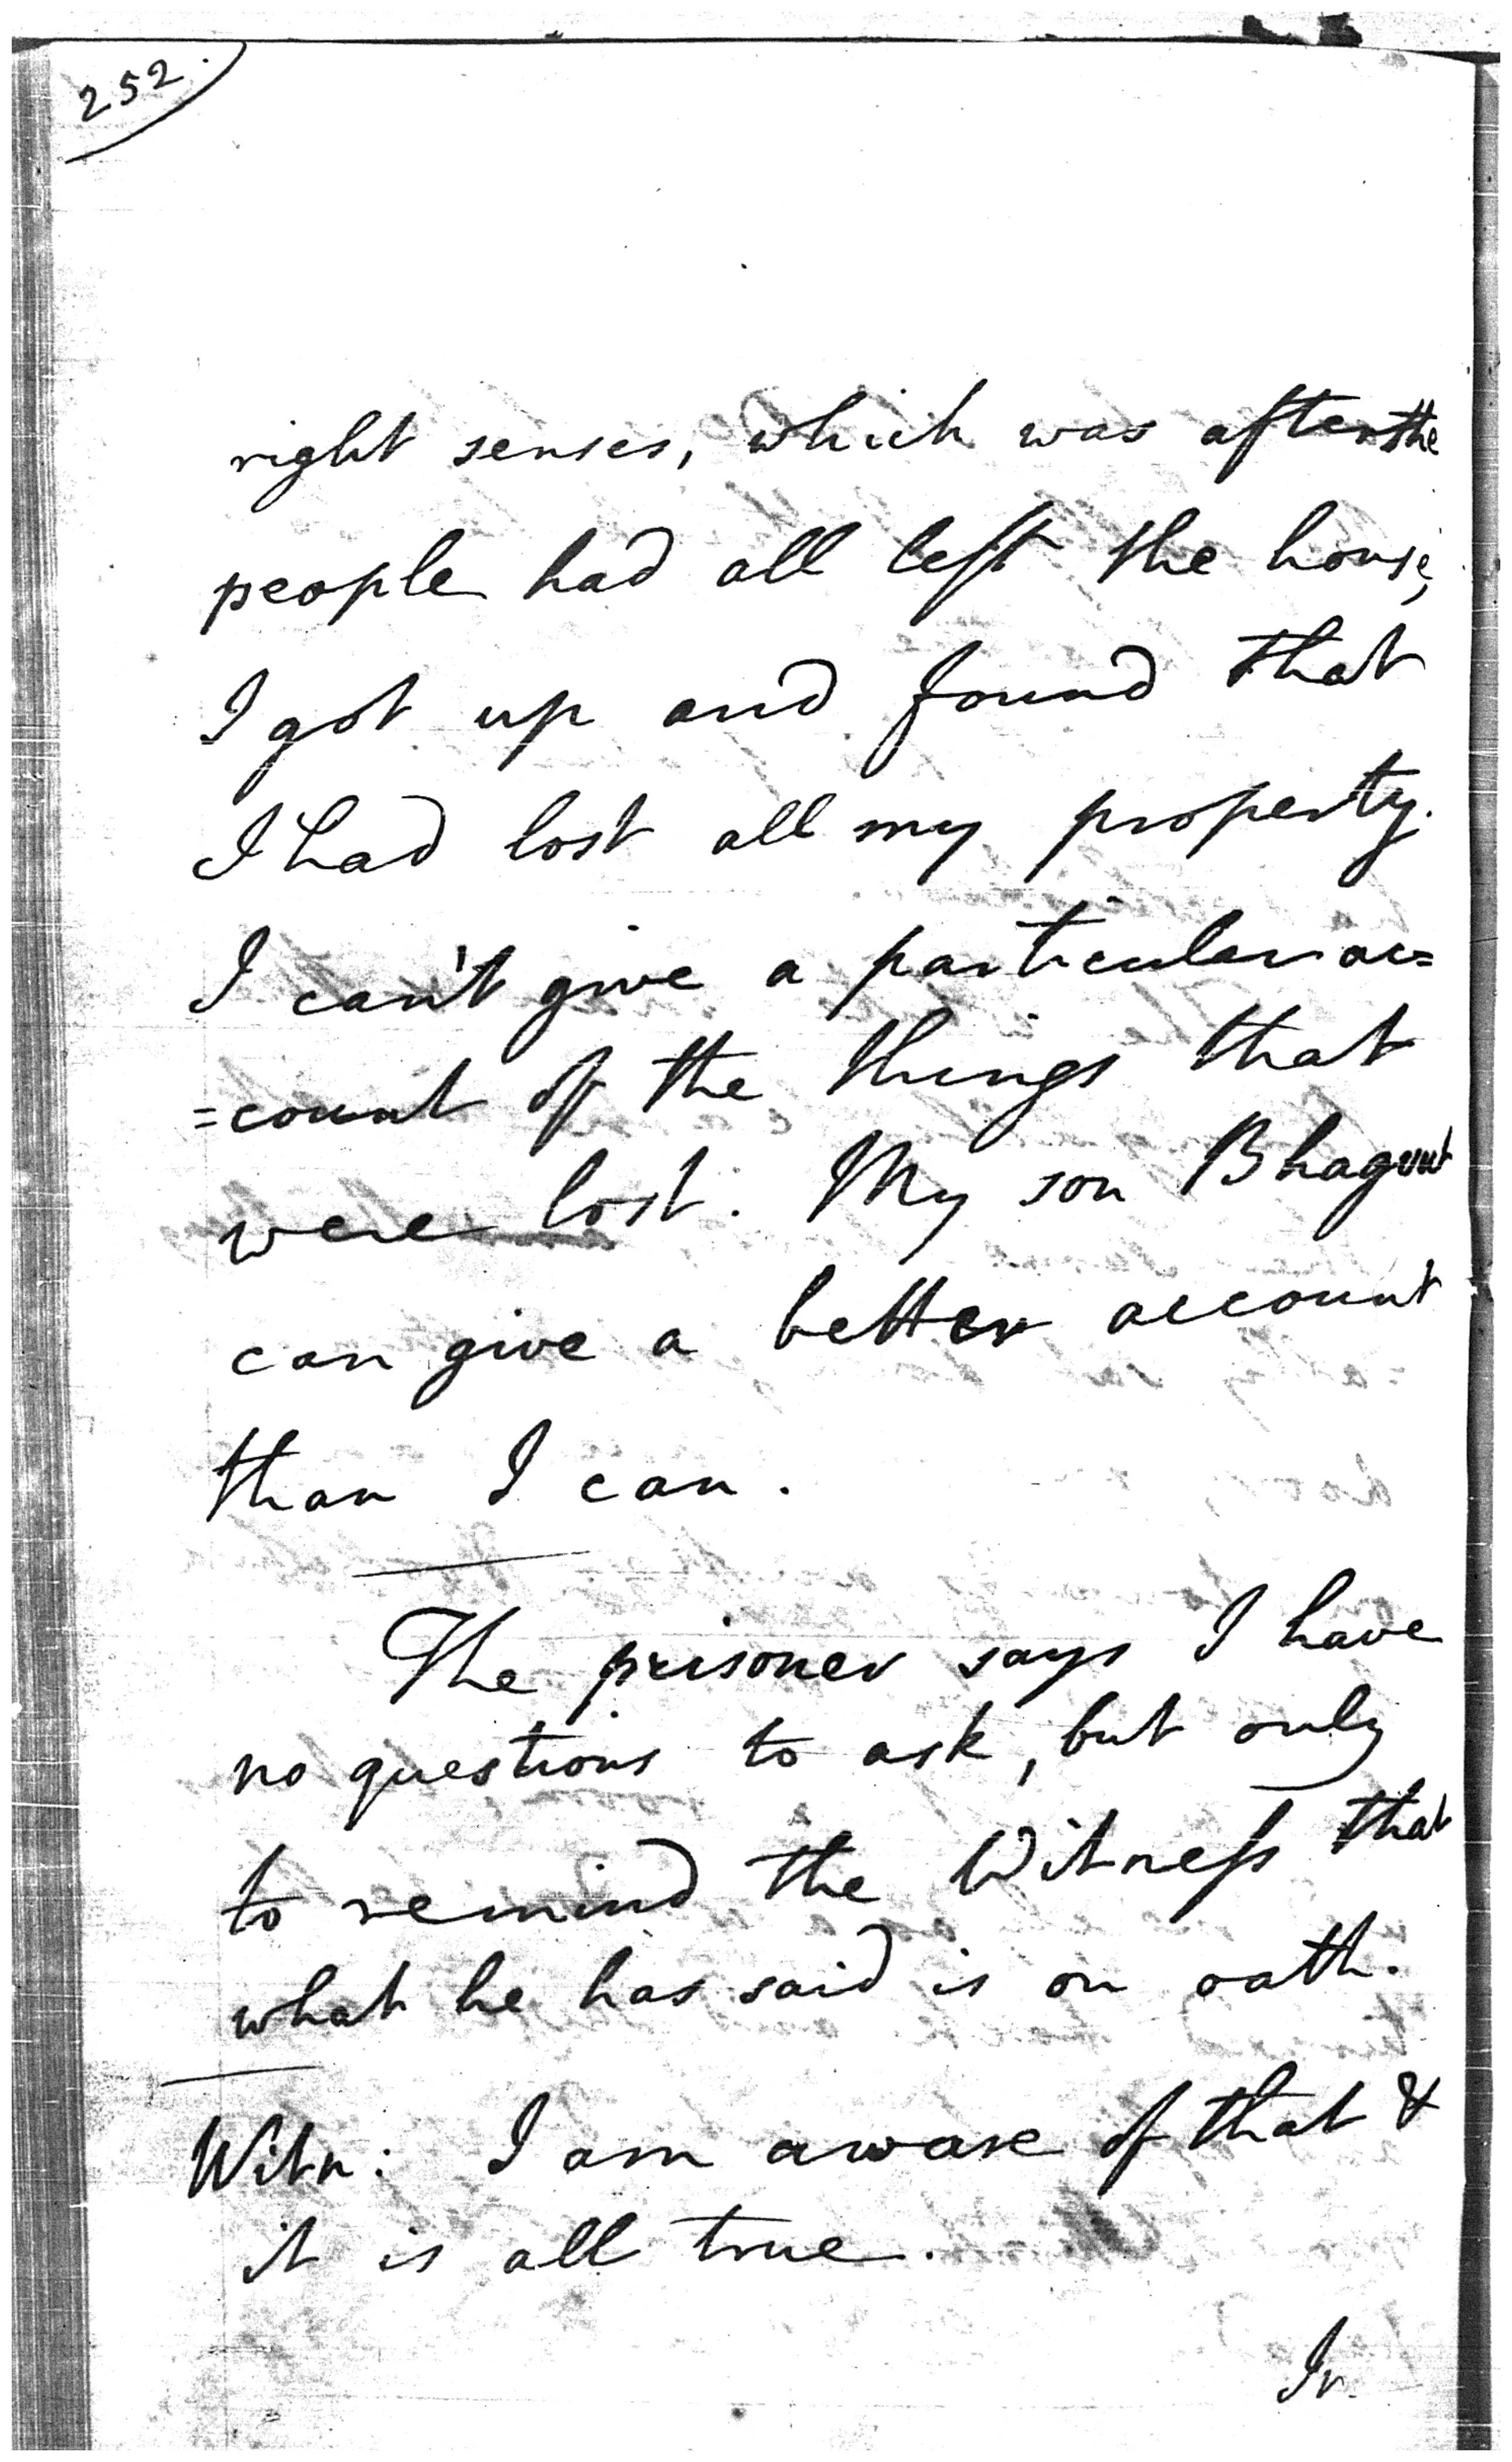 252.
right senses, which was after the
people had all left the house,
I got up and found that
I had lost all my property.
I can't give a particular ac=
=count of the things that
were lost. My son Bhagvut
can give a better account
than I can.
The prisoner says I have
no questions to ask, but only
to remind the Witneſs that
what he has said is on oath.
Witn: I am aware of that &
it is all true.